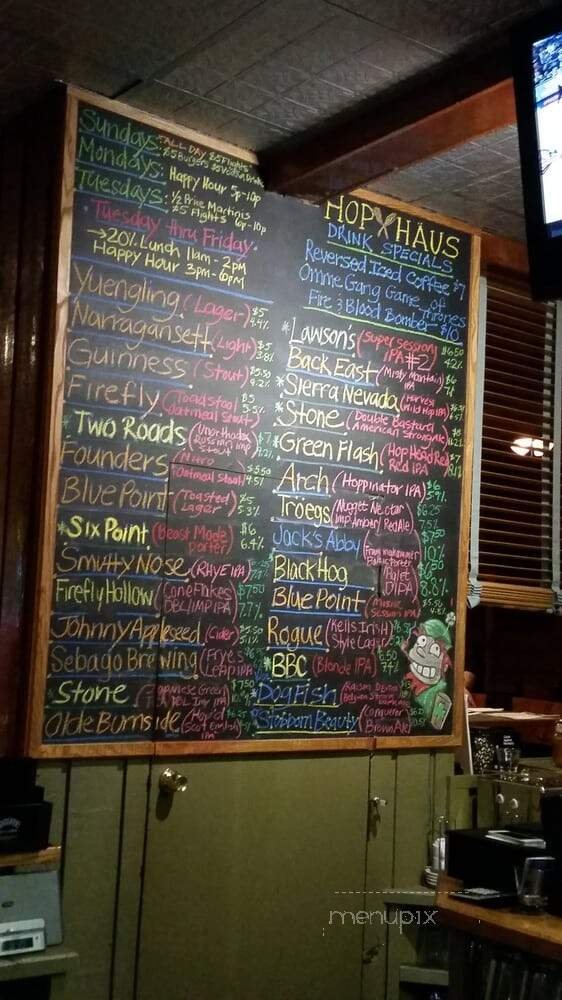 Sundays: ALL DAY $5 Flights
$5 Burgers $5 Vodka Drinks
Mondays: Happy Hour 5p-10p
Tuesdays: 1/2 Price Martinis
$5 Flights 6p-10p
Tuesday thru Friday
→20% Lunch 11am-2pm
Happy Hour 3pm-6pm
Yuengling (Lager) $5 4.4%
Narragansett (Light) $5 3.8%
Guinness (Stout) $5.50 4.2%
Firefly (Toadstool Oatmeal Stout) $5 5.5%
*Two Roads (Unorthodox Russian Imp Stout) $7
Founders (Nitro Oatmeal Stout) $5.50 4.5%
Blue Point (Toasted Lager) $5 5.3%
*Six Point (Beast Mode Porter) $6 6.4%
Smutty Nose (RHYE IPA)
Firefly Hollow (Cone Flakes DBL/IMP IPA) $7.50 7.7%
Johnny Appleseed (Cider) $5.50
Sebago Brewing (Frye's Leap IPA)
*Stone (Japanese Green Tea DBL Imp IPA) $7.50
Olde Burnside
HOP HAUS
DRINK SPECIALS
Reversed Iced Coffee $7
Omme Gang Game of
Thrones
Fire & Blood Bomber $10
*Lawson's (Super Session IPA #2) $6.50 4.2%
Back East (Misty Mountain IPA) $6
*Sierra Nevada (Harvest Wild Hop IPA)
*Stone (Double Bastard American Strong Ale) $8 11.2%
*Green Flash (Hop Head Red Red IPA) $7 8.1%
Arch (Hoppinator IPA) $6 5.9%
Tröegs (Nugget Nectar Imp Amber/Red Ale) $6.25 7.5%
Jack's Abby (Framinghammer Baltic Porter) $7.50 10%
Black Hog DIPA) $6 8.8%
Blue Point (Mosaic Session IPA) $5.50 4.8%
Rogue (Kells Irish Style Lager)
*BBC (Blonde IPA) 6.50 7.4%
*Dog Fish
*Stubborn Beauty (Conqueror Brown Ale)
menupix